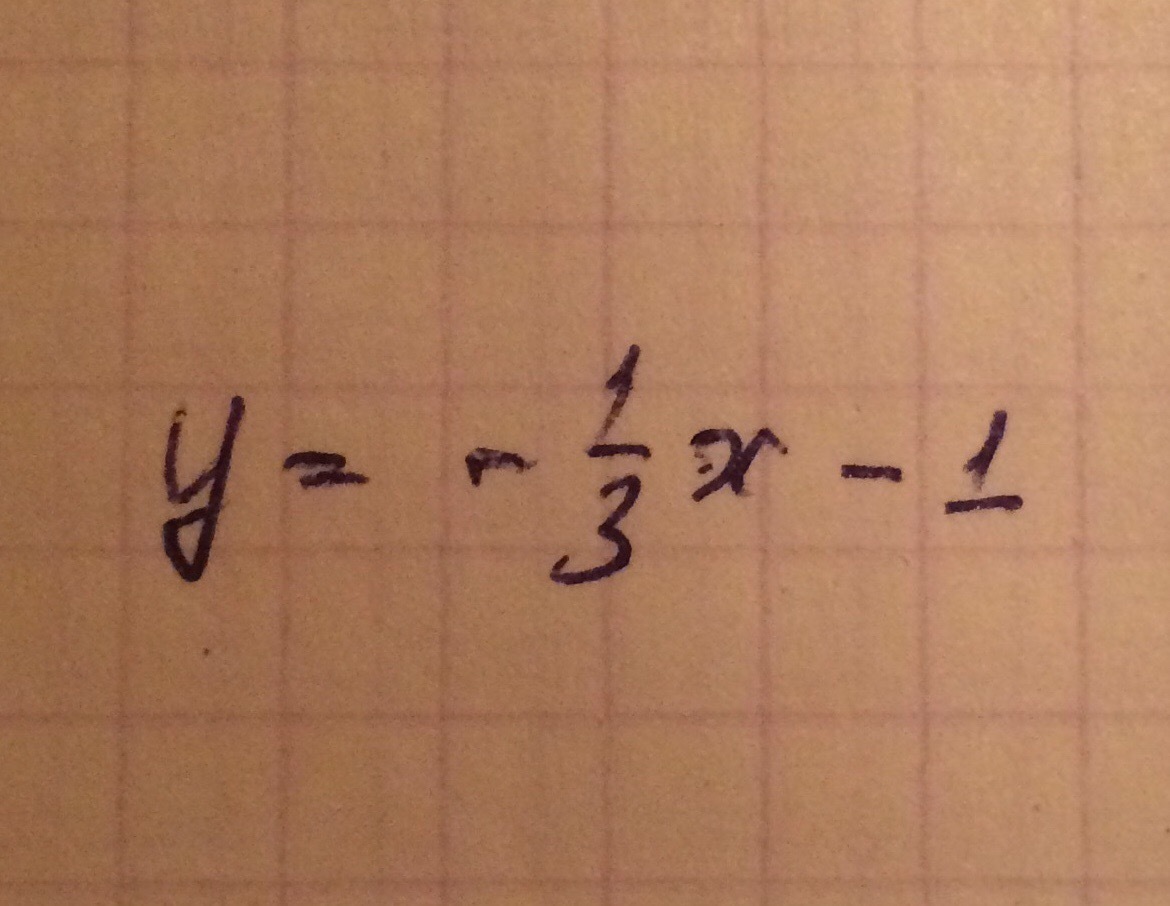 y = - 1/3 x - 1